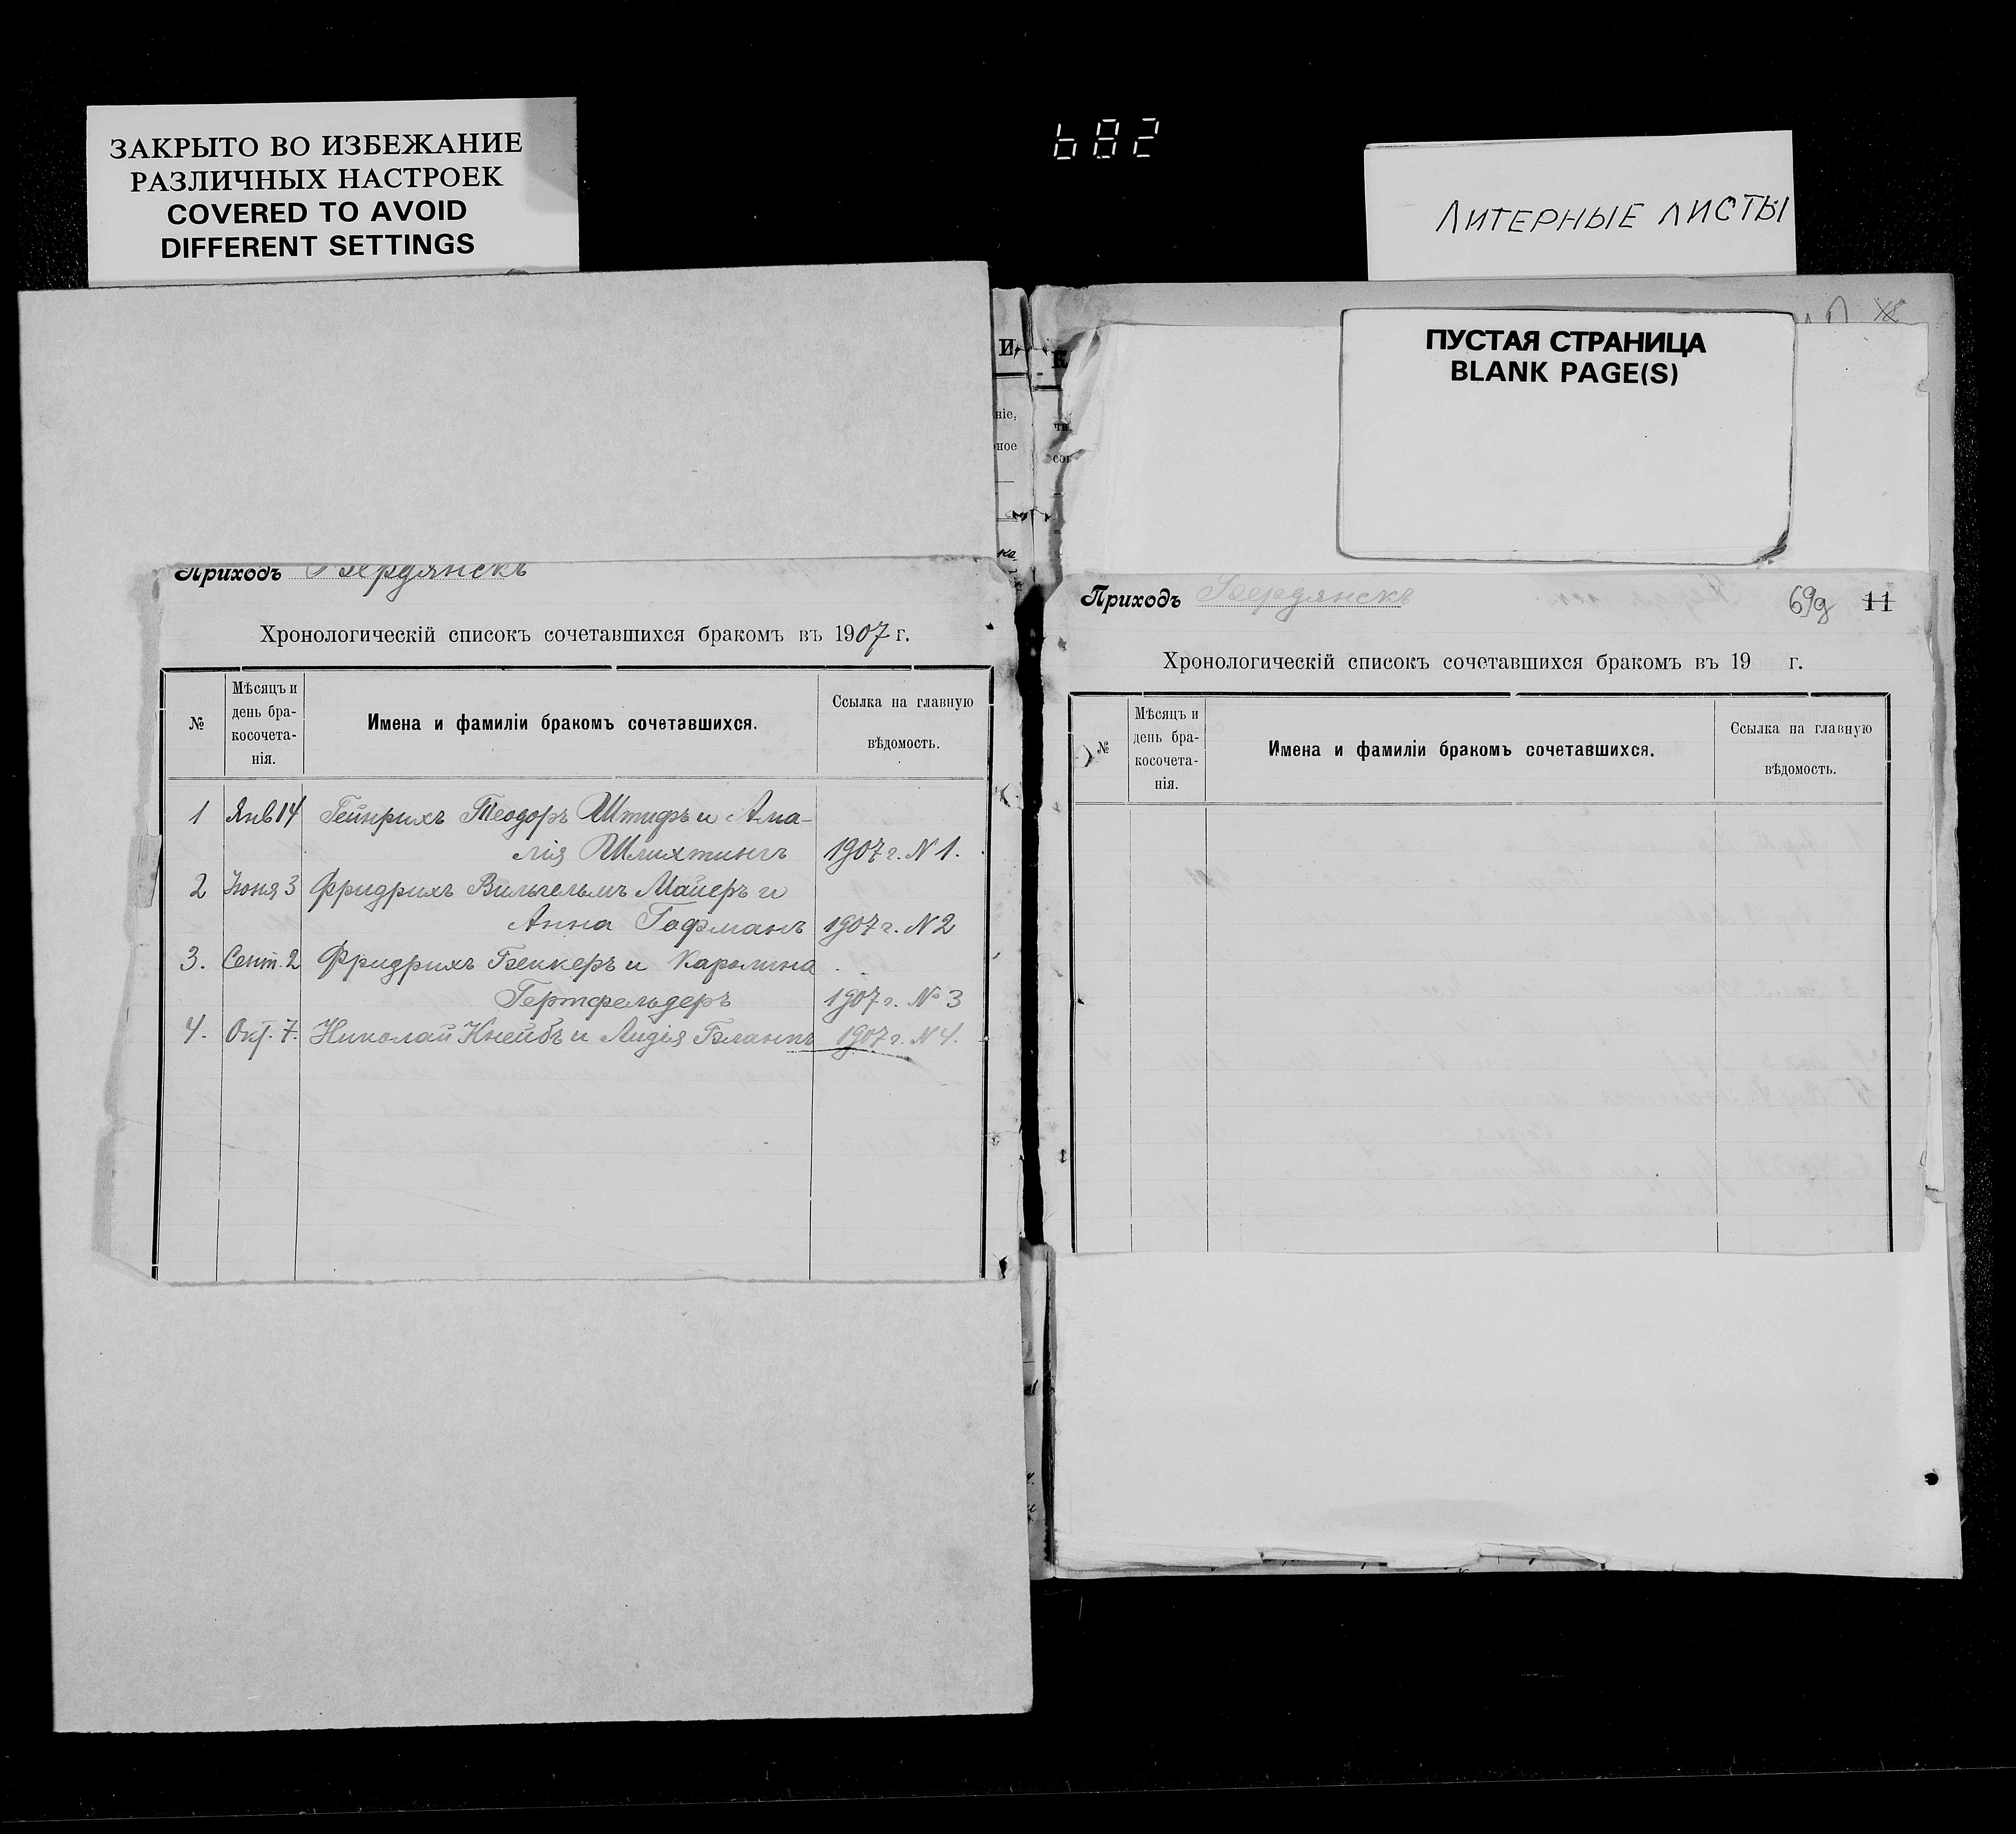 ЗАКРЫТО ВО ИЗБЕЖАНИЕ
РАЗЛИЧНЫХ НАСТРОЕК
COVERED TO AVOID
DIFFERENT SETTINGS
682
ЛИТЕРНЫЕ ЛИСТЫ
ПУСТАЯ СТРАНИЦА
BLANK PAGE(S)
Приходъ Бердянскъ
Хронологическій списокъ сочетавшихся бракомъ въ 1907 г.
№
Мѣсяцъ и
день бра-
косочета-
нія.
Имена и фамиліи бракомъ сочетавшихся.
Ссылка на главную
вѣдомость.
1 Янв 14 Гейнрихъ Теодоръ Штифъ и Ама-
лія Шлихтингъ 1907 г. N 1.
2 Іюня 3 Фридрихъ Вильгельмъ Майеръ и
Анна Гофманъ 1907 г. N 2
3. Сент. 2 Фридрихъ Беккеръ и Каролина
Гертфельдеръ 1907 г. № 3
4. Окт. 7. Николай Кнейбъ и Лидія Бланкъ 1907 г. N 4.
Приходъ Бердянскъ
69g 11
Хронологическій списокъ сочетавшихся бракомъ въ 19 г.
№
Мѣсяцъ и
день бра-
косочета-
нія.
Имена и фамиліи бракомъ сочетавшихся.
Ссылка на главную
вѣдомость.